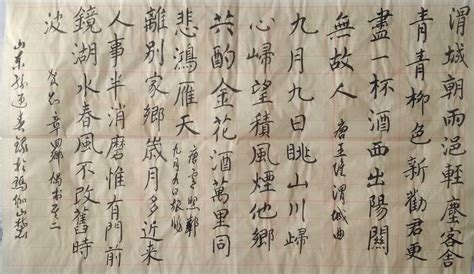 渭城朝雨浥輕塵客舍
青青柳色新勸君更
盡一杯酒西出陽關
無故人 唐王維渭城曲
九月九日眺山川歸
心歸望積風煙他鄉
共酌金花酒萬里同
悲鴻雁天 唐盧照鄰
九月九日旅眺
離別家鄉歲月多近来
人事半消磨惟有門前
鏡湖水春風不改舊時
波 賀知章 偶書其二
山东 春錄於珞珈山